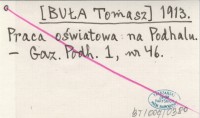 [BUŁA Tomasz] 1913.
Praca oświatowa na Podhalu.
— Gaz. Podh. 1, nr 46.